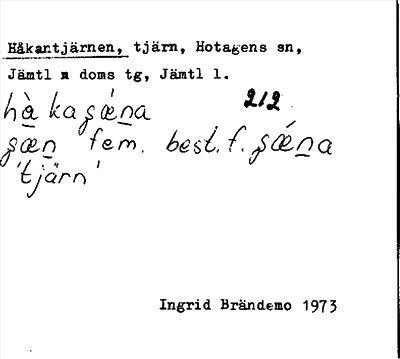 Håkantjärnen, tjärn, Hotagens sn,
Jämtl:s doms tg, Jämtl l.
212
fem. best. f.
'tjärn'
Ingrid Brändemo 1973